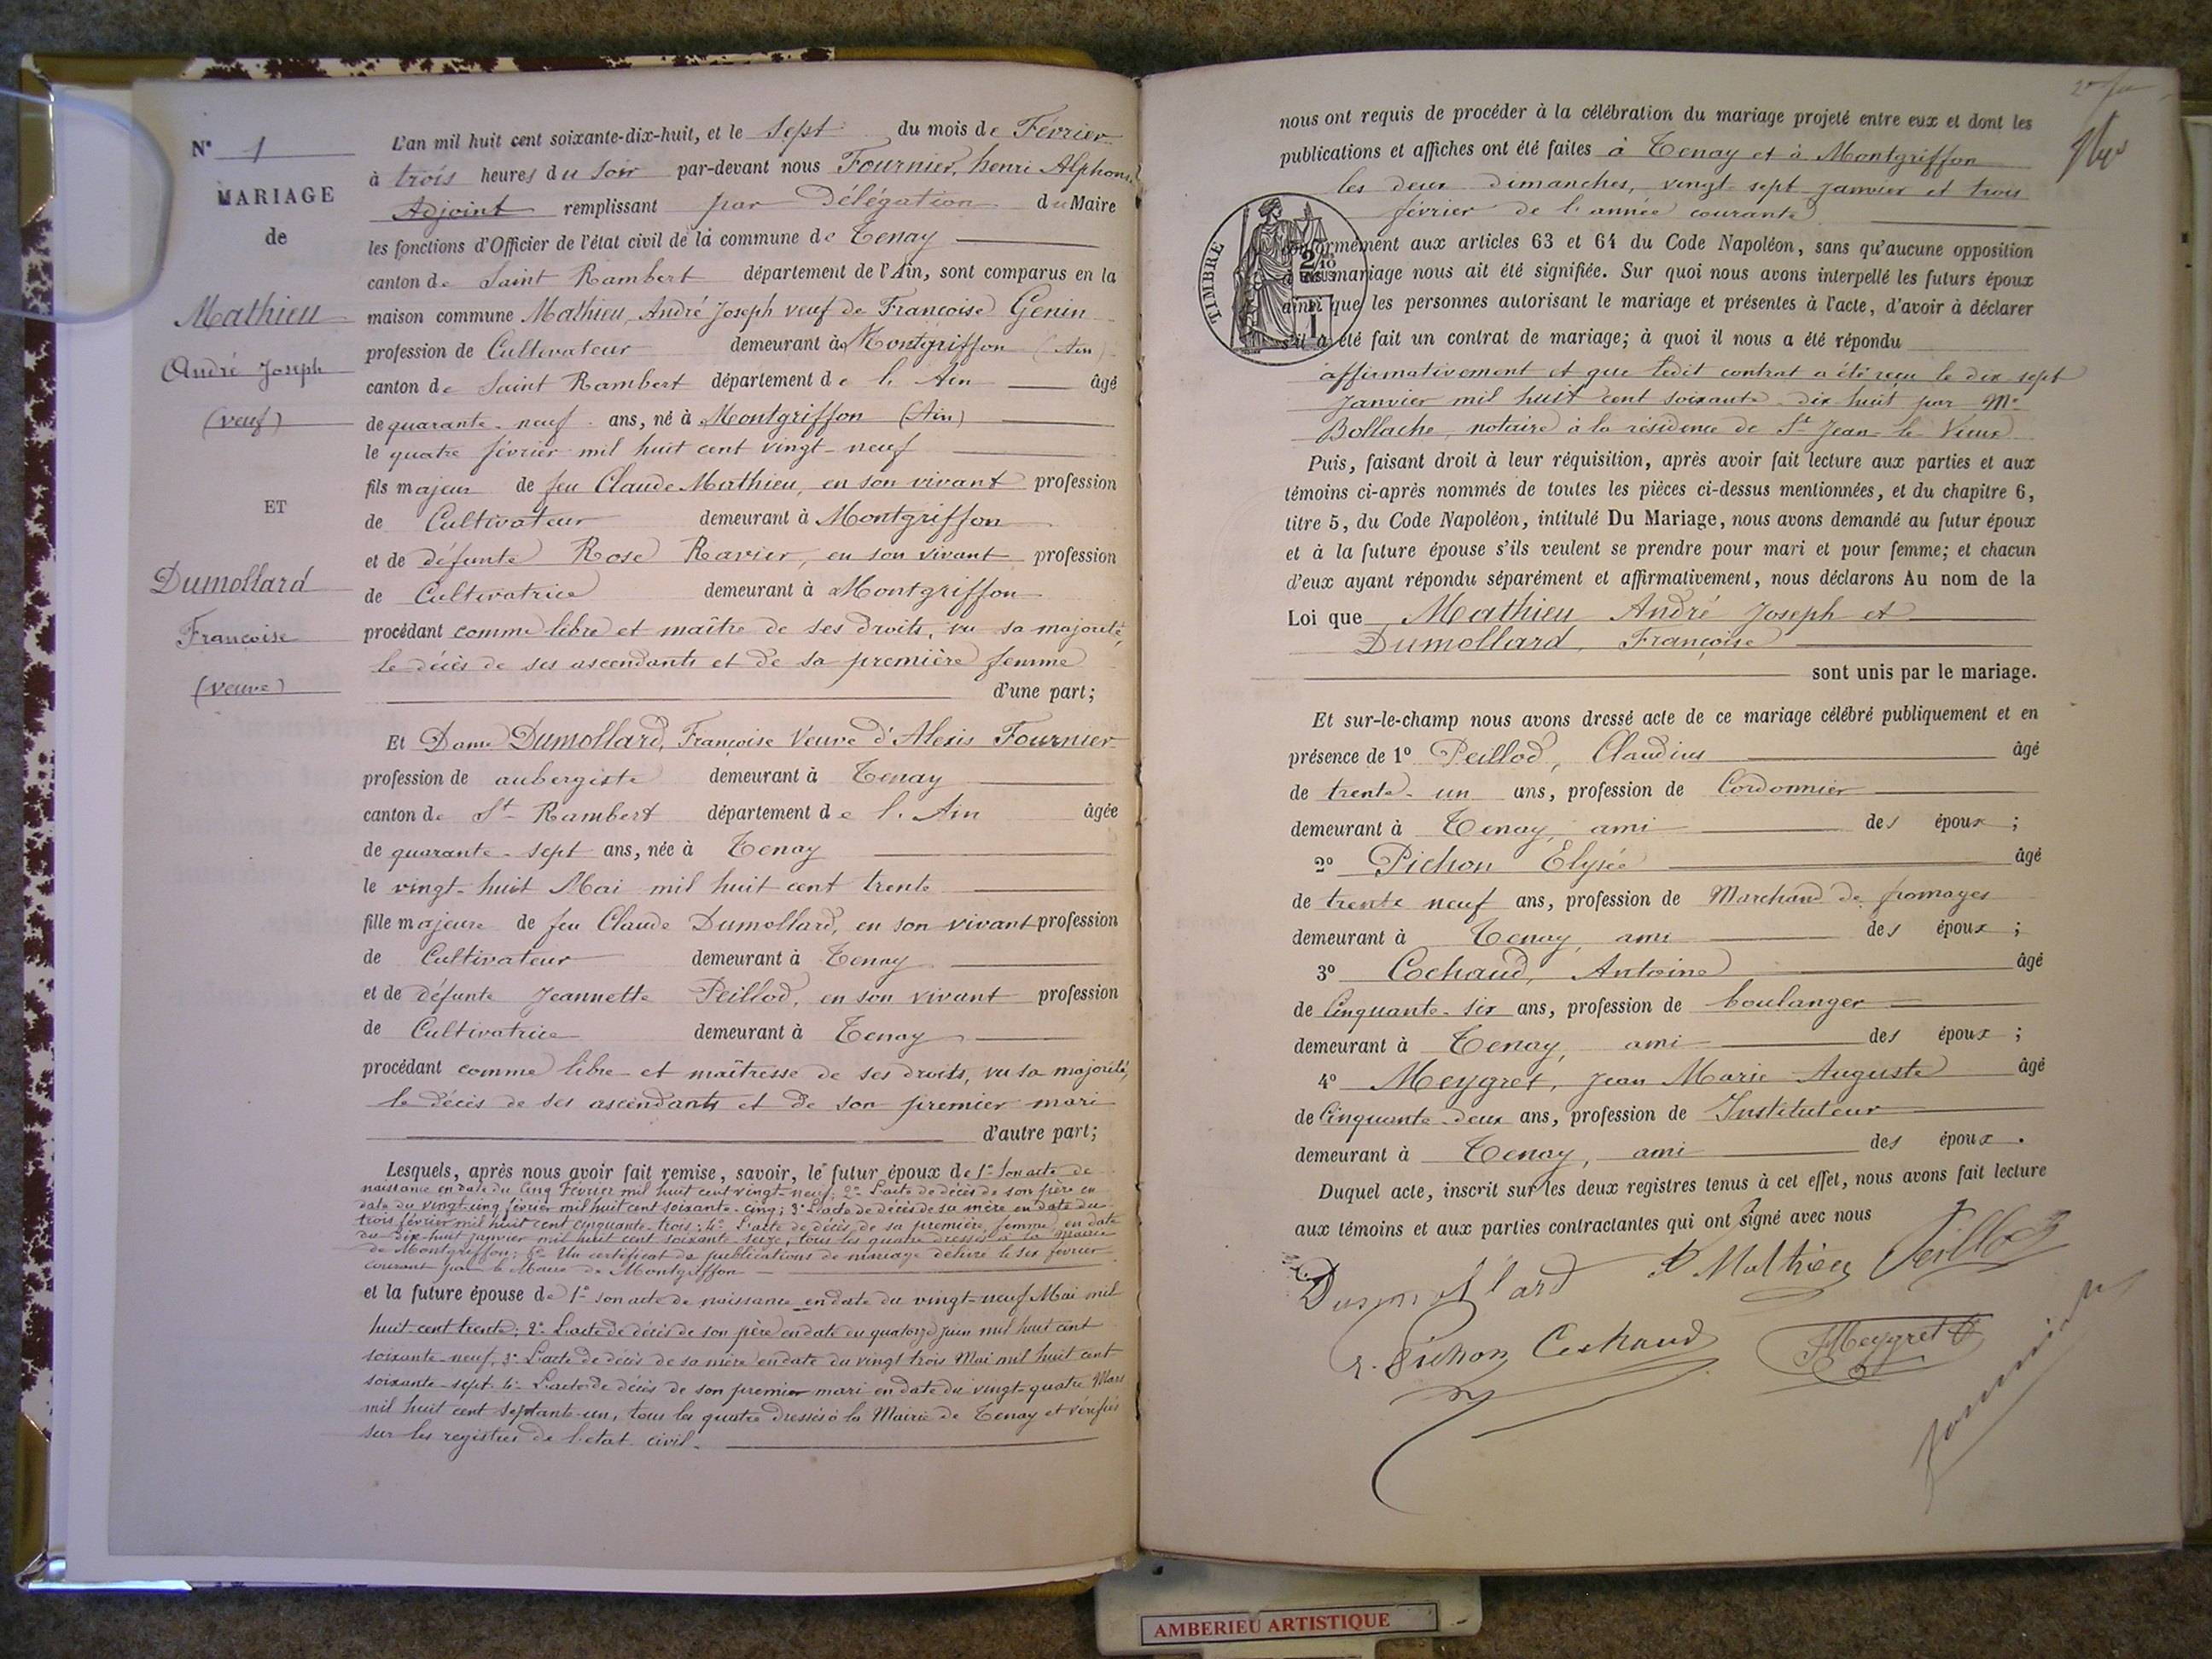 N° 1
MARIAGE
de
Mathieu
André Joseph
(veuf)
ET
Dumollard
Françoise
(veuve)
L'an mil huit cent soixante-dix-huit, et le Sept du mois de Février
à trois heures du soir par-devant nous Fournier, henri Alphonse
Adjoint remplissant par Délégation du Maire
les fonctions d'Officier de l'état civil de la commune de Tenay
canton de Saint Rambert département de l'Ain, sont comparus en la
maison commune Mathieu, André Joseph veuf de Francoise Genin
profession de Cultivateur demeurant à Montgriffon (Ain)
canton de Saint Rambert département de l'Ain âgé
de quarante-neuf ans, né à Montgriffon (Ain)
le quatre février mil huit cent vingt-neuf
fils majeur de feu Claude Mathieu, en son vivant profession
de Cultivateur demeurant à Montgriffon
et de défunte Rose Ravier, en son vivant profession
de Cultivatrice demeurant à Montgriffon
procédant comme libre et maître de ses droits, vu sa majorité,
le décès de ses ascendants et de sa première femme
d'une part;
Et Dame Dumollard, Françoise Veuve d'Alexis Fournier
profession de aubergiste demeurant à Tenay
canton de St Rambert département de l'Ain âgée
de quarante-sept ans, née à Tenay
le vingt-huit Mai mil huit cent trente
fille majeure de feu Claude Dumollard, en son vivant profession
de Cultivateur demeurant à Tenay
et de défunte Jeannette Peillod, en son vivant profession
de Cultivatrice demeurant à Tenay
procédant comme libre et maîtresse de ses droits, vu sa majorité,
le décès de ses ascendants et de son premier mari
d'autre part;
Lesquels, après nous avoir fait remise, savoir, le futur époux de 1° Son acte de
naissance en date du cinq Février mil huit cent vingt-neuf; 2° L'acte de décès de son père en
date du vingt-cinq février mil huit cent soixante-cinq; 3° L'acte de décès de sa mère en date du
trois février mil huit cent cinquante-trois; 4° L'acte de décès de sa première femme, en date
du dix-huit janvier mil huit cent soixante-seize, tous les quatre dressés à la Mairie
de Montgriffon; 5° Un certificat de publications de mariage délivré le six février
courant par le Maire de Montgriffon
et la future épouse de 1° son acte de naissance en date du vingt-neuf Mai mil
huit cent trente; 2° L'acte de décès de son père en date du quatorze Juin mil huit cent
soixante-neuf, 3° L'acte de décès de sa mère en date du vingt trois Mai mil huit cent
soixante-sept. 4° L'acte de décès de son premier mari en date du vingt-quatre Mars
mil huit cent septante-un, tous les quatre dressés à la Mairie de Tenay et vérifiés
sur les registres de l'état civil.
nous ont requis de procéder à la célébration du mariage projeté entre eux et dont les
publications et affiches ont été faites à Tenay et à Montgriffon
les deux dimanches, vingt-sept janvier et trois
février de l'année courante
TIMBRE
2/10
EN SUS
1
conformément aux articles 63 et 64 du Code Napoléon, sans qu'aucune opposition
mariage nous ait été signifiée. Sur quoi nous avons interpellé les futurs époux
ainsi que les personnes autorisant le mariage et présentes à l'acte, d'avoir à déclarer
s'il a été fait un contrat de mariage; à quoi il nous a été répondu
affirmativement et que ledit contrat a été reçu le dix sept
Janvier mil huit cent soixante-dix huit par Me
Bollache, notaire à la résidence de St Jean-le-Vieux
Puis, faisant droit à leur réquisition, après avoir fait lecture aux parties et aux
témoins ci-après nommés de toutes les pièces ci-dessus mentionnées, et du chapitre 6,
titre 5, du Code Napoléon, intitulé Du Mariage, nous avons demandé au futur époux
et à la future épouse s'ils veulent se prendre pour mari et pour femme; et chacun
d'eux ayant répondu séparément et affirmativement, nous déclarons Au nom de la
Loi que Mathieu André Joseph et
Dumollard, Françoise
sont unis par le mariage.
Et sur-le-champ nous avons dressé acte de ce mariage célébré publiquement et en
présence de 1° Peillod, Claudius âgé
de trente-un ans, profession de Cordonnier
demeurant à Tenay, ami des époux;
2° Pichon Elysée âgé
de trente neuf ans, profession de Marchand de fromages
demeurant à Tenay, ami des époux;
3° Cochaud, Antoine âgé
de Cinquante-six ans, profession de boulanger
demeurant à Tenay, ami des époux;
4° Meygret, Jean Marie Auguste âgé
de Cinquante-deux ans, profession de Instituteur
demeurant à Tenay, ami des époux.
Duquel acte, inscrit sur les deux registres tenus à cet effet, nous avons fait lecture
aux témoins et aux parties contractantes qui ont signé avec nous
Dumollard Mathieu Peillod
E. Pichon Cochaud Meygret
Fournier
AMBERIEU ARTISTIQUE